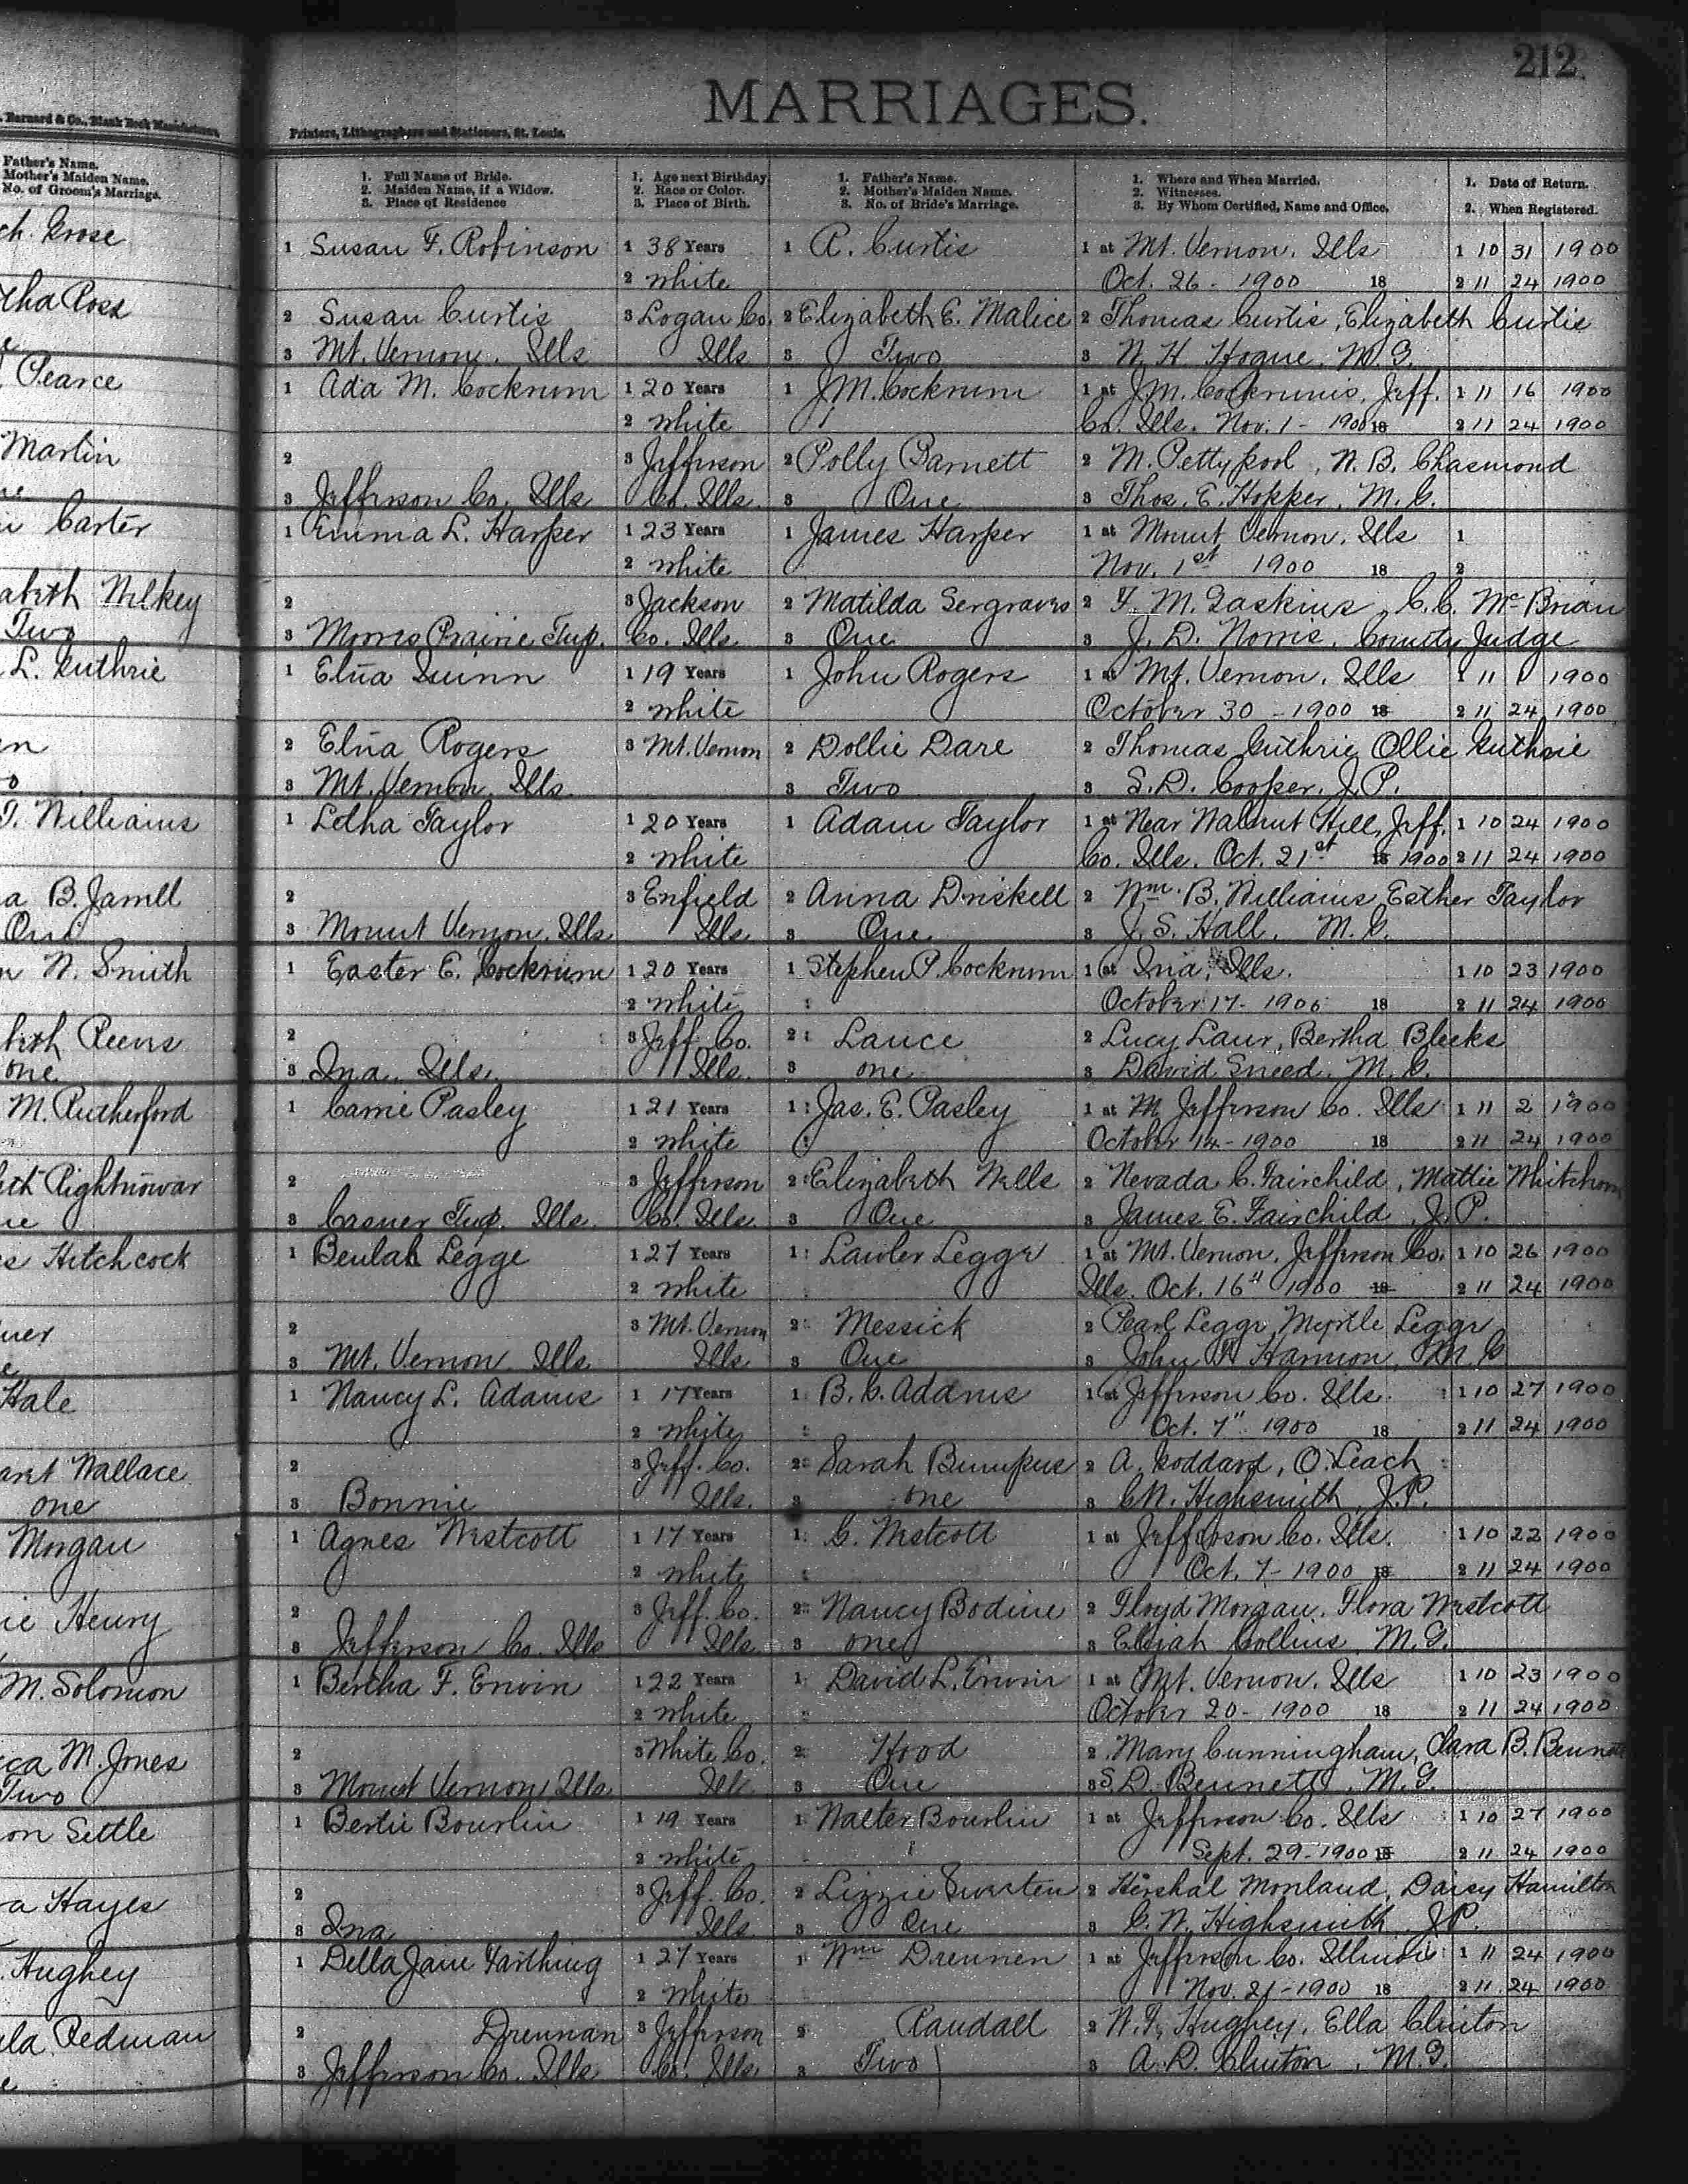 212
MARRIAGES.
Barnard & Co., Blank Book Manufacturers,
Printers, Lithographers and Stationers, St. Louis.
Father's Name.
Mother's Maiden Name.
No. of Groom's Marriage.
1. Full Name of Bride.
2. Maiden Name, if a Widow.
3. Place of Residence
1. Age next Birthday
2. Race or Color.
3. Place of Birth.
1. Father's Name.
2. Mother's Maiden Name.
3. No. of Bride's Marriage.
1. Where and When Married.
2. Witnesses.
3. By Whom Certified, Name and Office.
1. Date of Return.
2. When Registered.
ch. Grose
tha Ross
Pearce
Martin
Carter
abeth Wilkey
Two
L. Guthrie
T. Williams
a B. Jarrell
One
n N. Smith
beth Reeves
one
M. Rutherford
eth Rightnowar
es Hitchcock
Hale
aret Wallace
one
Morgan
ie Henry
M. Solomon
cca M. Jones
Two
on Settle
a Hayes
Hughey
ula Redman
1 Susan F. Robinson 1 38 Years 1 R. Curtis 1 at Mt. Vernon, Ills 1 10 31 1900
2 white Oct. 26 - 1900 18 2 11 24 1900
2 Susan Curtis 3 Logan Co. 2 Elizabeth E. Malice 2 Thomas Curtis, Elizabeth Curtis
3 Mt. Vernon, Ills Ills 3 Two 3 N. H. Hogue, M. G.
1 Ada M. Cockrum 1 20 Years 1 J M. Cockrum 1 at J. M. Cockrums, Jeff. 1 11 16 1900
2 white Co. Ills. Nov. 1 - 1900 18 2 11 24 1900
2 3 Jefferson 2 Polly Garnett 2 M. Pettypool, N. B. Chasmond
3 Jefferson Co. Ills Co. Ills. 3 One 3 Thos. E. Hopper, M. G.
1 Emma L. Harper 1 23 Years 1 James Harper 1 at Mount Vernon, Ills 1
2 white Nov. 1st 1900 18 2
2 3 Jackson 2 Matilda Sergraves 2 F. M. Gaskins, C. C. McBrian
3 Morris Prairie Twp. Co. Ills. 3 One 3 J. D. Norris, County Judge
1 Eliza Quinn 1 19 Years 1 John Rogers 1 at Mt. Vernon, Ills 1 11 1 1900
2 white October 30 - 1900 18 2 11 24 1900
2 Eliza Rogers 3 Mt. Vernon 2 Dollie Dare 2 Thomas Guthrie, Ollie Guthrie
3 Mt. Vernon, Ills 3 Two 3 S. D. Cooper, J. P.
1 Letha Taylor 1 20 Years 1 Adam Taylor 1 at Near Walnut Hill, Jeff. 1 10 24 1900
2 white Co. Ills. Oct. 21st 18 1900 2 11 24 1900
2 3 Enfield 2 Anna Driskell 2 Wm. B. Williams, Esther Taylor
3 Mount Vernon, Ills Ills 3 One 3 J. S. Hall, M. G.
1 Easter E. Cockrum 1 20 Years 1 Stephen P. Cockrum 1 at Ina, Ills. 1 10 23 1900
2 white October 17 - 1900 18 2 11 24 1900
2 3 Jeff. Co. 2 Lance 2 Lucy Laur, Bertha Bleeks
3 Ina, Ills. Ills. 3 one 3 David Sneed, M. G.
1 Carrie Pasley 1 21 Years 1 Jas. E. Pasley 1 at M Jefferson Co. Ills 1 11 2 1900
2 white October 14 - 1900 18 2 11 24 1900
2 3 Jefferson 2 Elizabeth Wells 2 Nevada C. Fairchild, Mattie
3 Casner Twp. Ills. Co. Ills. 3 One 3 James E. Fairchild, J. P.
1 Beulah Legge 1 27 Years 1 Lawler Legge 1 at Mt. Vernon, Jefferson Co. 1 10 26 1900
2 white Ills. Oct. 16" 1900 18 2 11 24 1900
2 3 Mt. Vernon 2 Messick 2 Pearl Legge, Myrtle Legge
3 Mt. Vernon Ills Ills 3 One 3 John Harmon, M. G
1 Nancy L. Adams 1 17 Years 1 B. C. Adams 1 at Jefferson Co. Ills. 1 10 27 1900
2 white Oct. 7" 1900 18 2 11 24 1900
2 3 Jeff. Co. 2 Sarah Bumpus 2 A. Goddard, O. Leach
3 Bonnie Ills. 3 one 3 C. N. Highsmith, J. P.
1 Agnes Westcott 1 17 Years 1 C. Westcott 1 at Jefferson Co. Ills. 1 10 22 1900
2 white Oct. 7 - 1900 18 2 11 24 1900
2 3 Jeff. Co. 2 Nancy Bodine 2 Floyd Morgan, Flora Westcott
3 Jefferson Co. Ills Ills. 3 one 3 Elijah Collins, M. G.
1 Bertha F. Erwin 1 22 Years 1 David L. Erwin 1 at Mt. Vernon, Ills 1 10 23 1900
2 white October 20 - 1900 18 2 11 24 1900
2 3 White Co. 2 Hood 2 Mary Cunningham, Clara B. Bennett
3 Mount Vernon, Ills. Ills. 3 One 3 S. D. Bennett, M. G.
1 Bertie Bourlin 1 19 Years 1 Walter Bourlin 1 at Jefferson Co. Ills 1 10 27 1900
2 white Sept. 29 - 1900 18 2 11 24 1900
2 3 Jeff. Co. 2 Lizzie 2 Hershal Morland, Daisy Hamilton
3 Ina Ills. 3 One 3 C. N. Highsmith, J P.
1 Della Jane Farthing 1 27 Years 1 Wm Drennen 1 at Jefferson Co. Illinois 1 11 24 1900
2 White Nov. 21 - 1900 18 2 11 24 1900
2 Drennan 3 Jefferson 2 Randall 2 W. F. Hughey, Ella Clinton
3 Jefferson Co. Ills Co. Ills. 3 Two 3 A. D. Clinton, M. G.